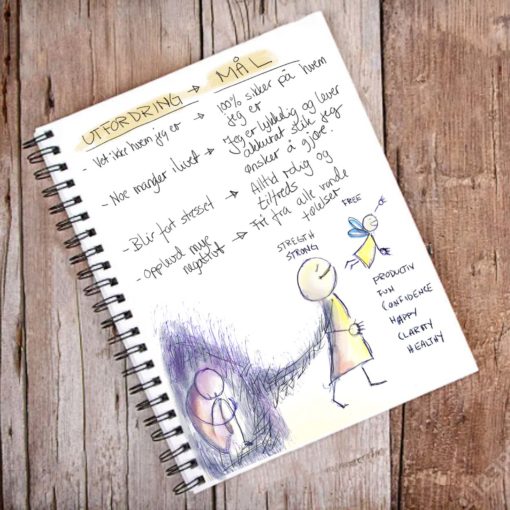 UTFORDRING → MÅL
- Vet ikke hvem jeg er → 100% sikker på hvem
jeg er
- Noe mangler i livet → Jeg er lykkelig og lever
akkurat slik jeg
ønsker å gjøre.
- Blir fort stresset → Alltid rolig og
tilfreds
- Opplevd mye
negativt → Fri fra alle vonde
følelser
STREGTH
STRONG
FREE
PRODUCTIV
FUN
CONFIDENCE
HAPPY
CLARITY
HEALTHY